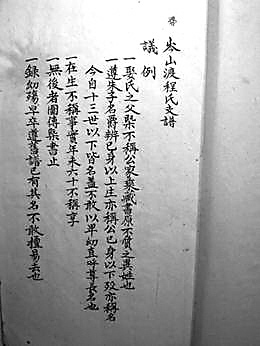 岑山渡程氏支譜
議例
一娶氏之父槩不稱公家藏書原不質之異姓也
一遵朱子名爵辨已身以上生亦稱公已身以下歿亦稱名
今自十三世以下皆名蓋不敢以卑幼直呼尊長名也
一在生不稱事實年未六十不稱享
一無後者圖傳槩書止
一錄幼殤早卒遵舊譜已有其名不敢擅易去也